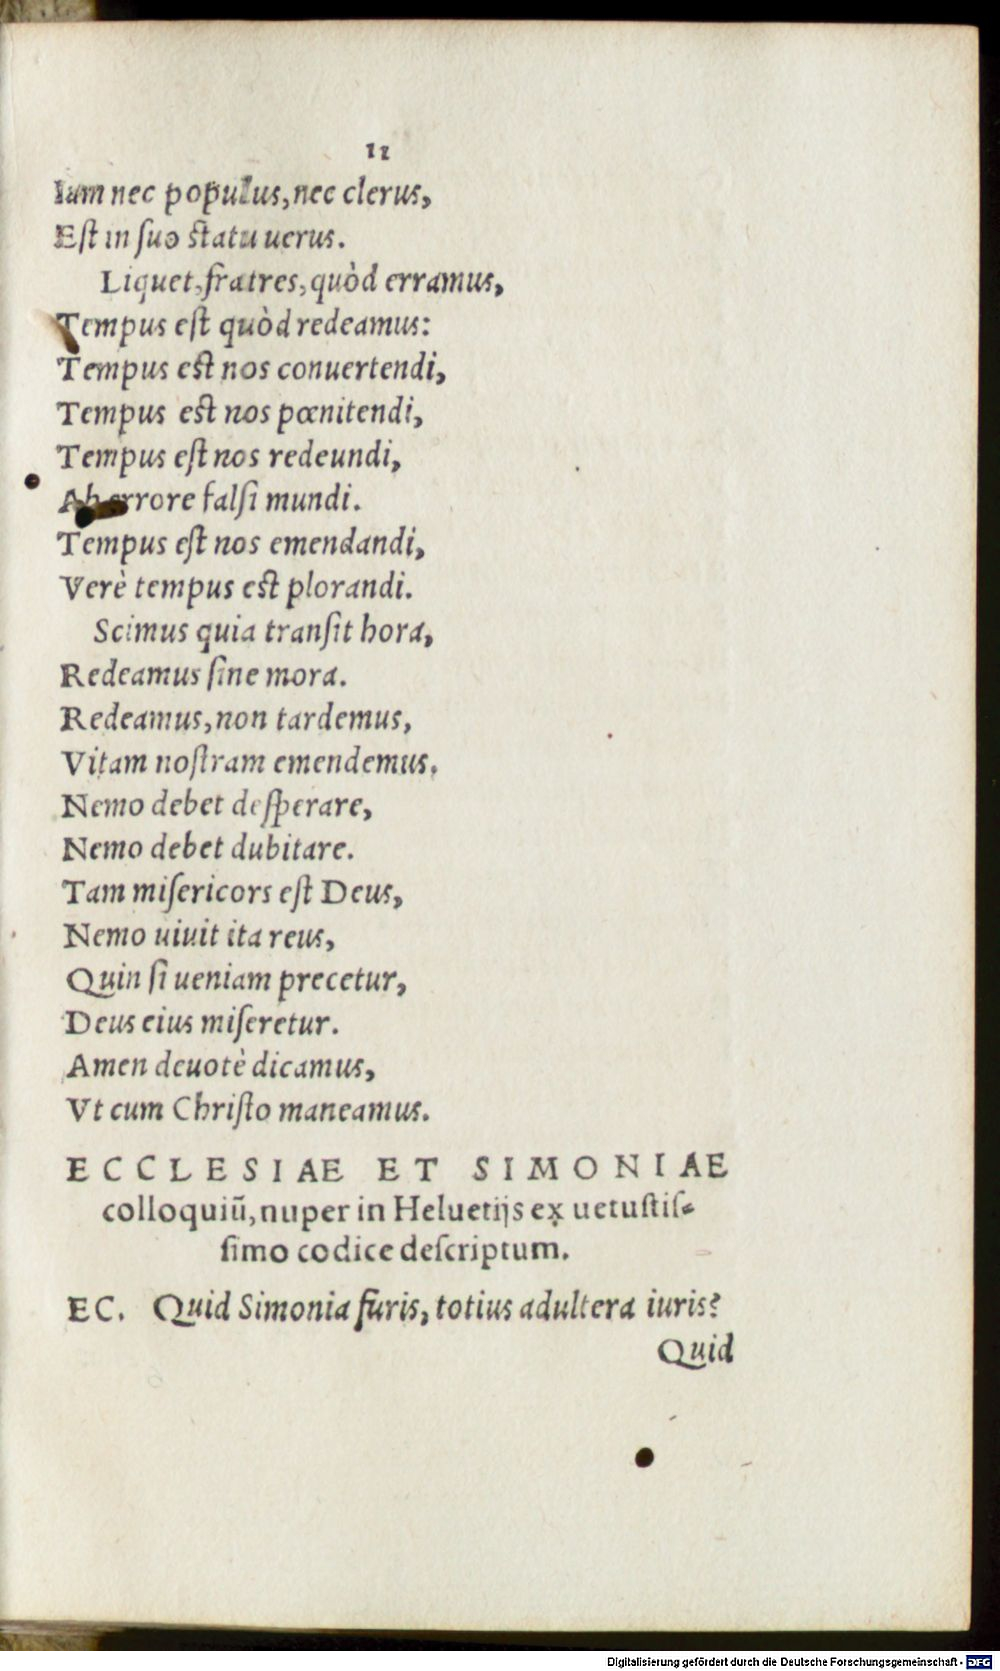 11
Iam nec populus, nec clerus,
Est in suo statu uerus.
Liquet, fratres, quòd erramus,
Tempus est quòd redeamus:
Tempus est nos conuertendi,
Tempus est nos pœnitendi,
Tempus est nos redeundi,
Ab errore falsi mundi.
Tempus est nos emendandi,
Verè tempus est plorandi.
Scimus quia transit hora,
Redeamus sine mora.
Redeamus, non tardemus,
Vitam nostram emendemus.
Nemo debet desperare,
Nemo debet dubitare.
Tam misericors est Deus,
Nemo uiuit ita reus,
Quin si ueniam precetur,
Deus eius miseretur.
Amen deuotè dicamus,
Vt cum Christo maneamus.
ECCLESIAE ET SIMONIAE
colloquiũ, nuper in Heluetijs ex uetustis-
simo codice descriptum.
EC. Quid Simonia furis, totius adultera iuris?
Quid
Digitalisierung gefördert durch die Deutsche Forschungsgemeinschaft - DFG